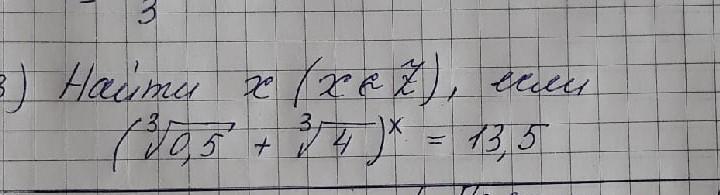 3
3) Найти x (x ∈ Z), если
(∛0,5 + ∛4)ˣ = 13,5